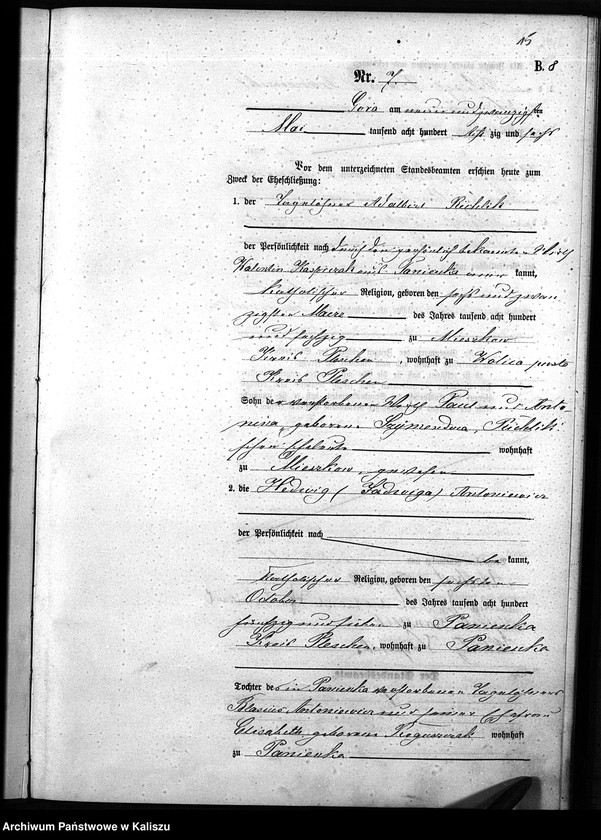 15
B. 8
Nr. 7.
Gora am neun und zwanzigsten
Mai tausend acht hundert acht zig und sechs
Vor dem unterzeichneten Standesbeamten erschien heute zum
Zweck der Eheschließung:
1. der Tagelöhner Adalbert
der Persönlichkeit nach durch den persönlich bekannten
Valentin aus Panienka kannt,
katholischer Religion, geboren den sechs und zwan
zigsten Maerz des Jahres tausend acht hundert
und sechzig zu Mieszkow
Kreis Pleschen, wohnhaft zu Wolica pusta
Kreis Pleschen
Sohn der verstorbenen Paul und Anto
nina, geborene
schen Eheleute wohnhaft
zu Mieszkow gewesen
2. die Hedwig (Jadwiga) Antoniewicz
der Persönlichkeit nach
be kannt,
katholischer Religion, geboren den sechsten
October des Jahres tausend acht hundert
zu Panienka
Kreis Pleschen, wohnhaft zu Panienka
Tochter des in Panienka verstorbenen Tagelöhners
Blasius Antoniewicz und seiner Ehefrau
Elisabeth geborene wohnhaft
zu Panienka
Archiwum Państwowe w Kaliszu